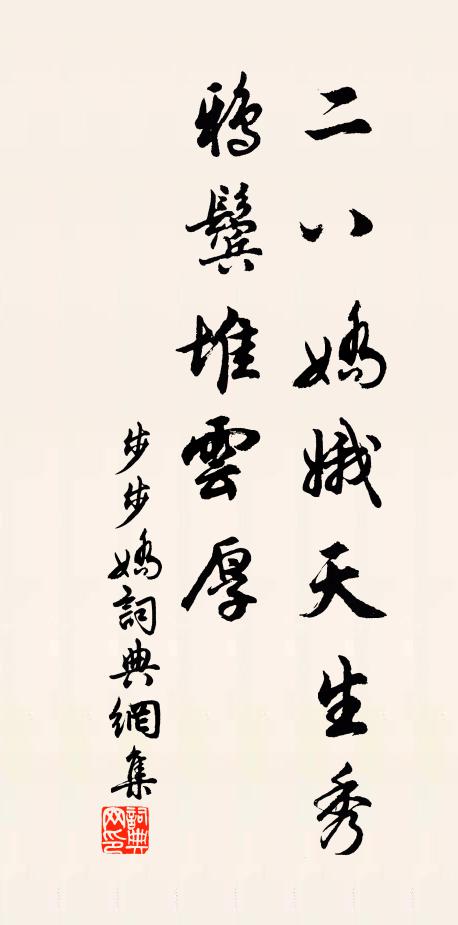 二八嬌娥天生秀
鴉鬢堆雲厚
步步嬌詞典網集
詞典网印